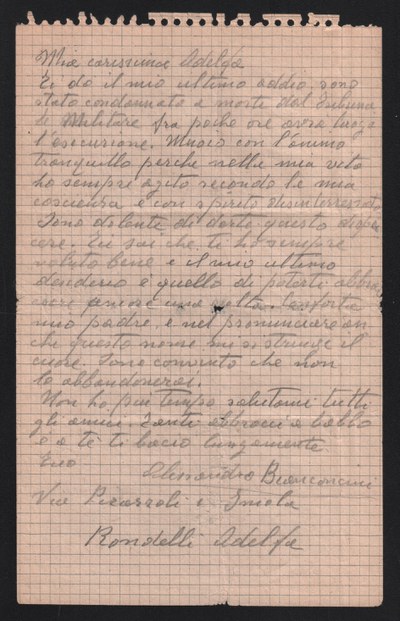 Mia carissima Adelfa
Ti do il mio ultimo addio, sono
stato condannato a morte dal Tribuna
le Militare fra poche ore avra luogo
l'esecuzione. Muoio con l'animo
tranquillo perche nella mia vita
ho sempre agito secondo la mia
coscienza e con spirito disinteressato
Sono dolente di darti questo dispia
cere. Tu sai che ti ho sempre
voluto bene e il mio ultimo
desiderio è quello di poterti abbra
ciare ancora una volta. Conforta
mio padre, e nel pronunciare an
che questo nome mi si stringe il
cuore. Sono convinto che non
lo abbandonerai.
Non ho piu tempo salutami tutti
gli amici. Tanti abbracci a babbo
e a te ti bacio lungamente
Tuo
Alessandro Bianconcini
Via Pisacane Imola
Rondelli Adelfa